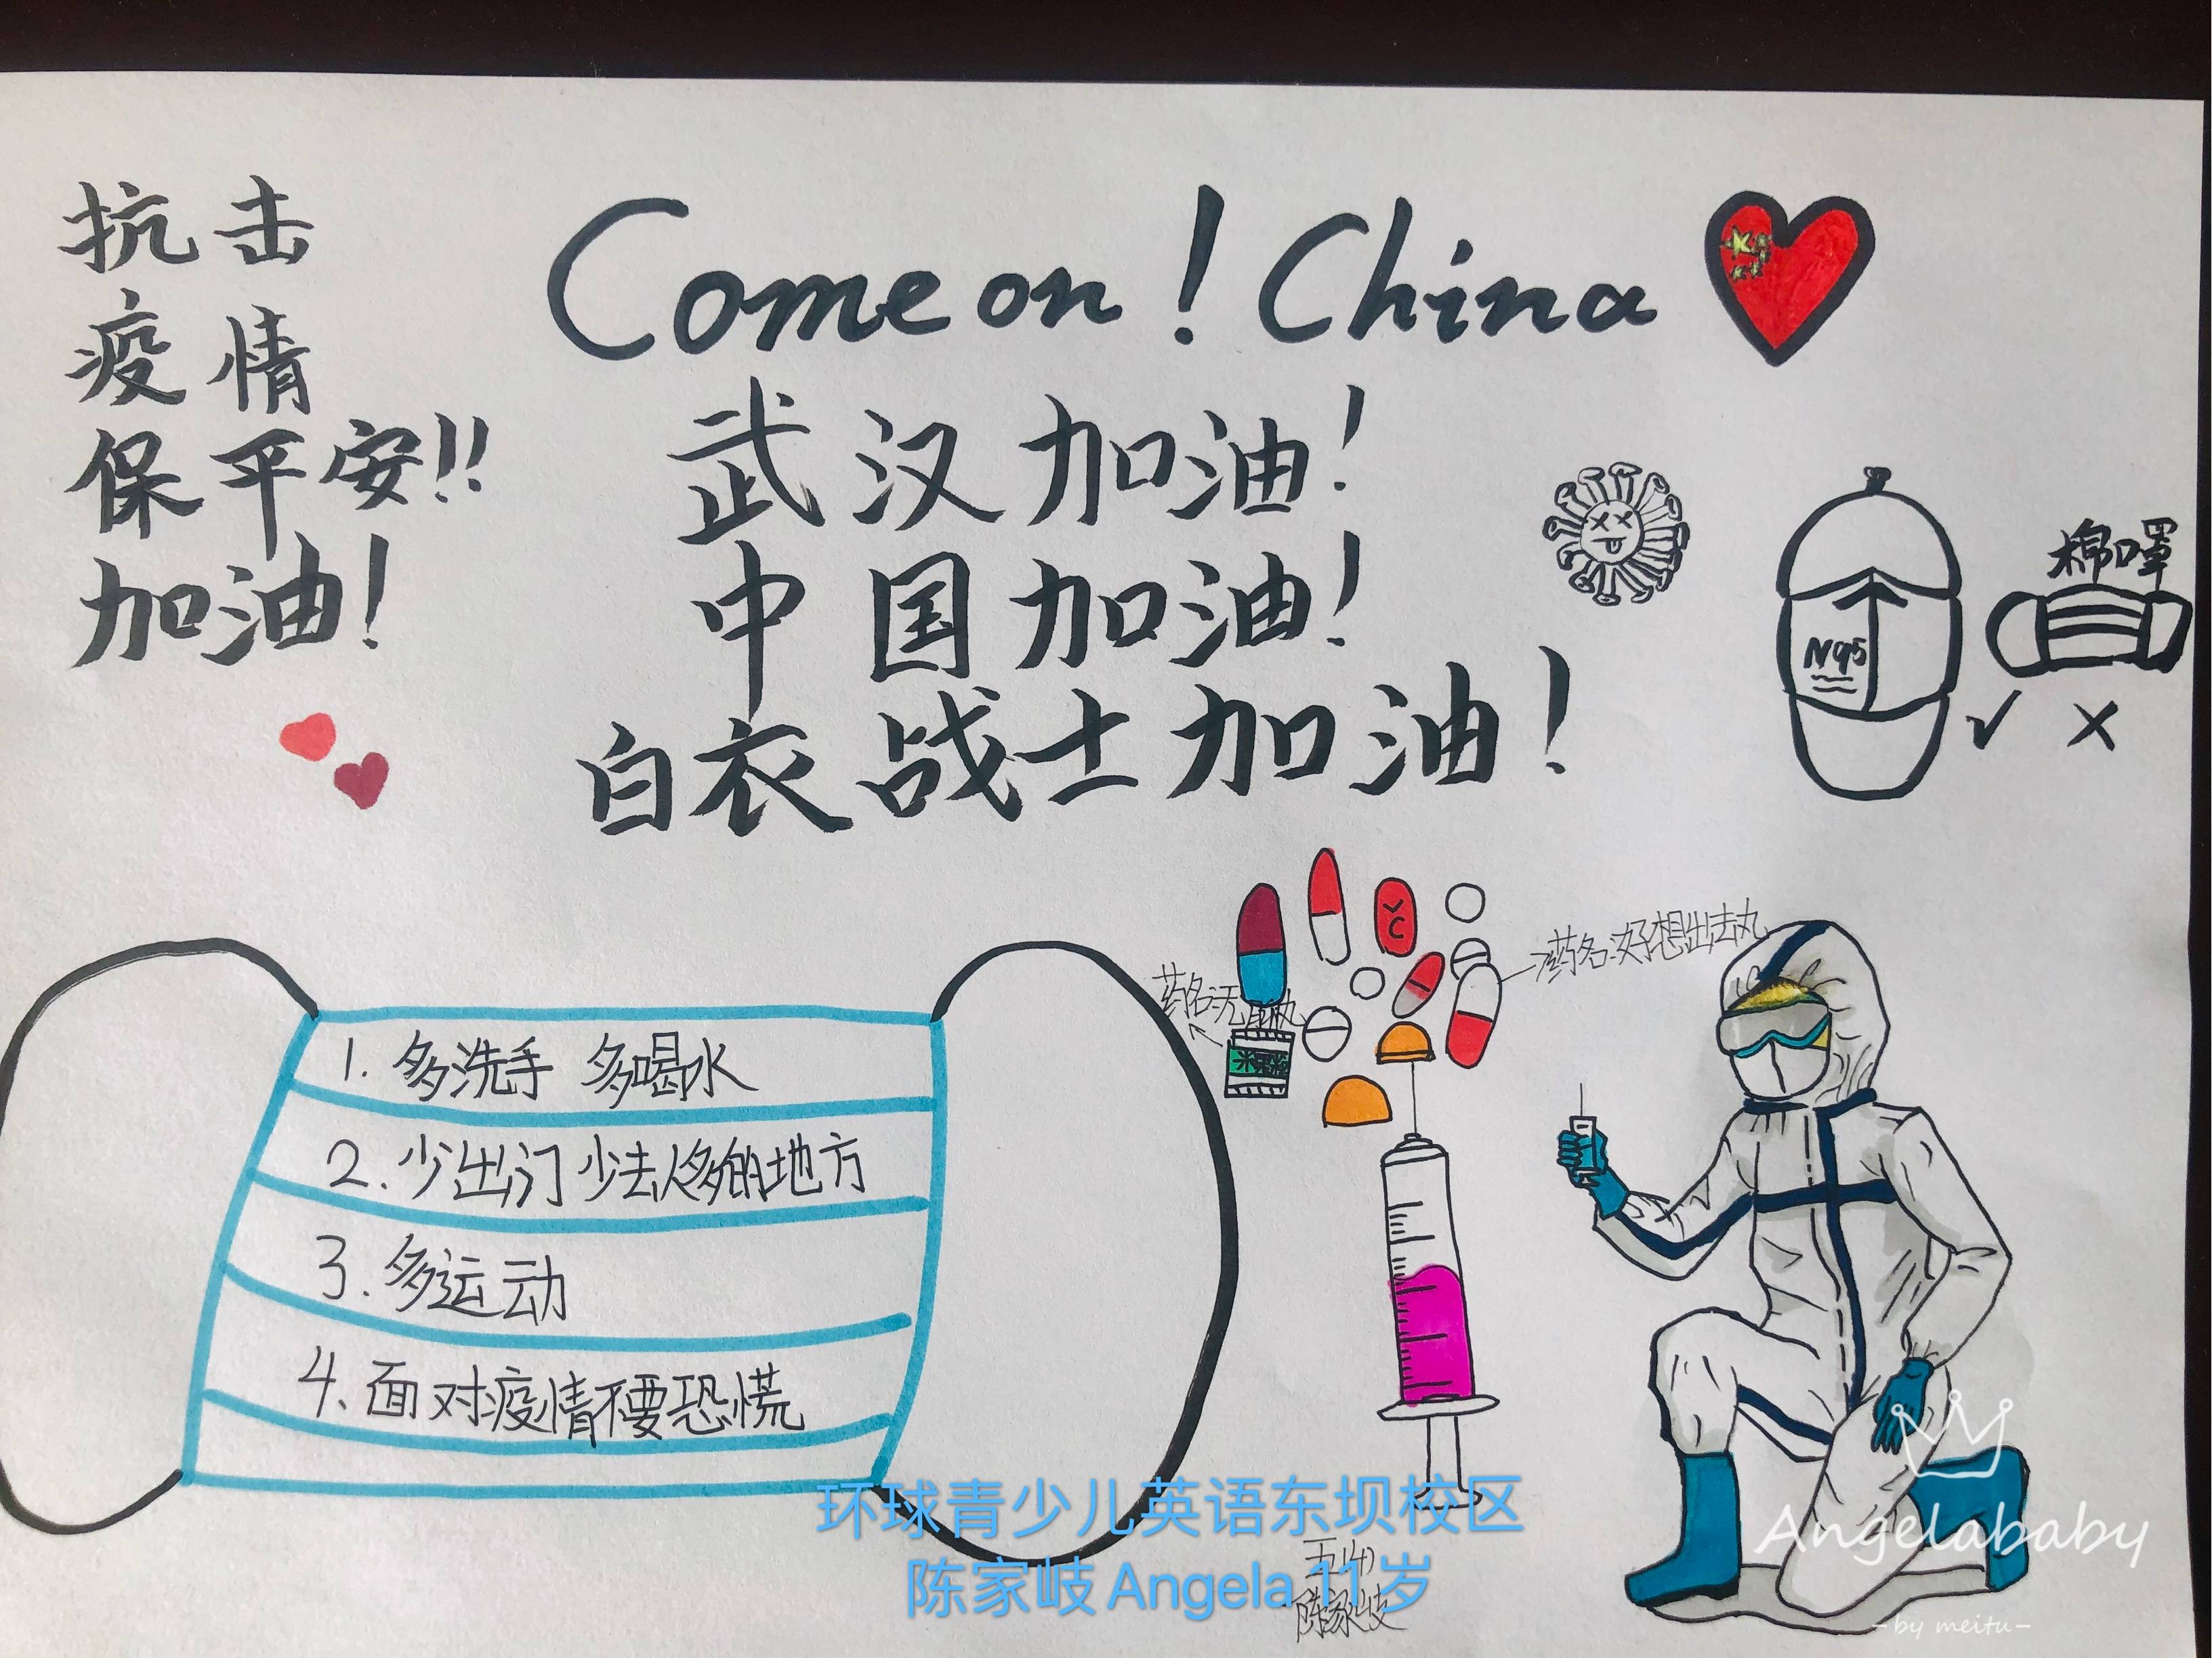 抗击
疫情
保平安!!
加油！
Come on！China
武汉加油！
中国加油！
白衣战士加油！
N95
棉口罩
√ ×
药名:好想出去丸
1. 多洗手 多喝水
2. 少出门 少去人多的地方
3. 多运动
4. 面对疫情不要恐慌
五(4)
陈家岐
环球青少儿英语东坝校区
陈家岐 Angela 11岁
Angelababy
-by meitu-